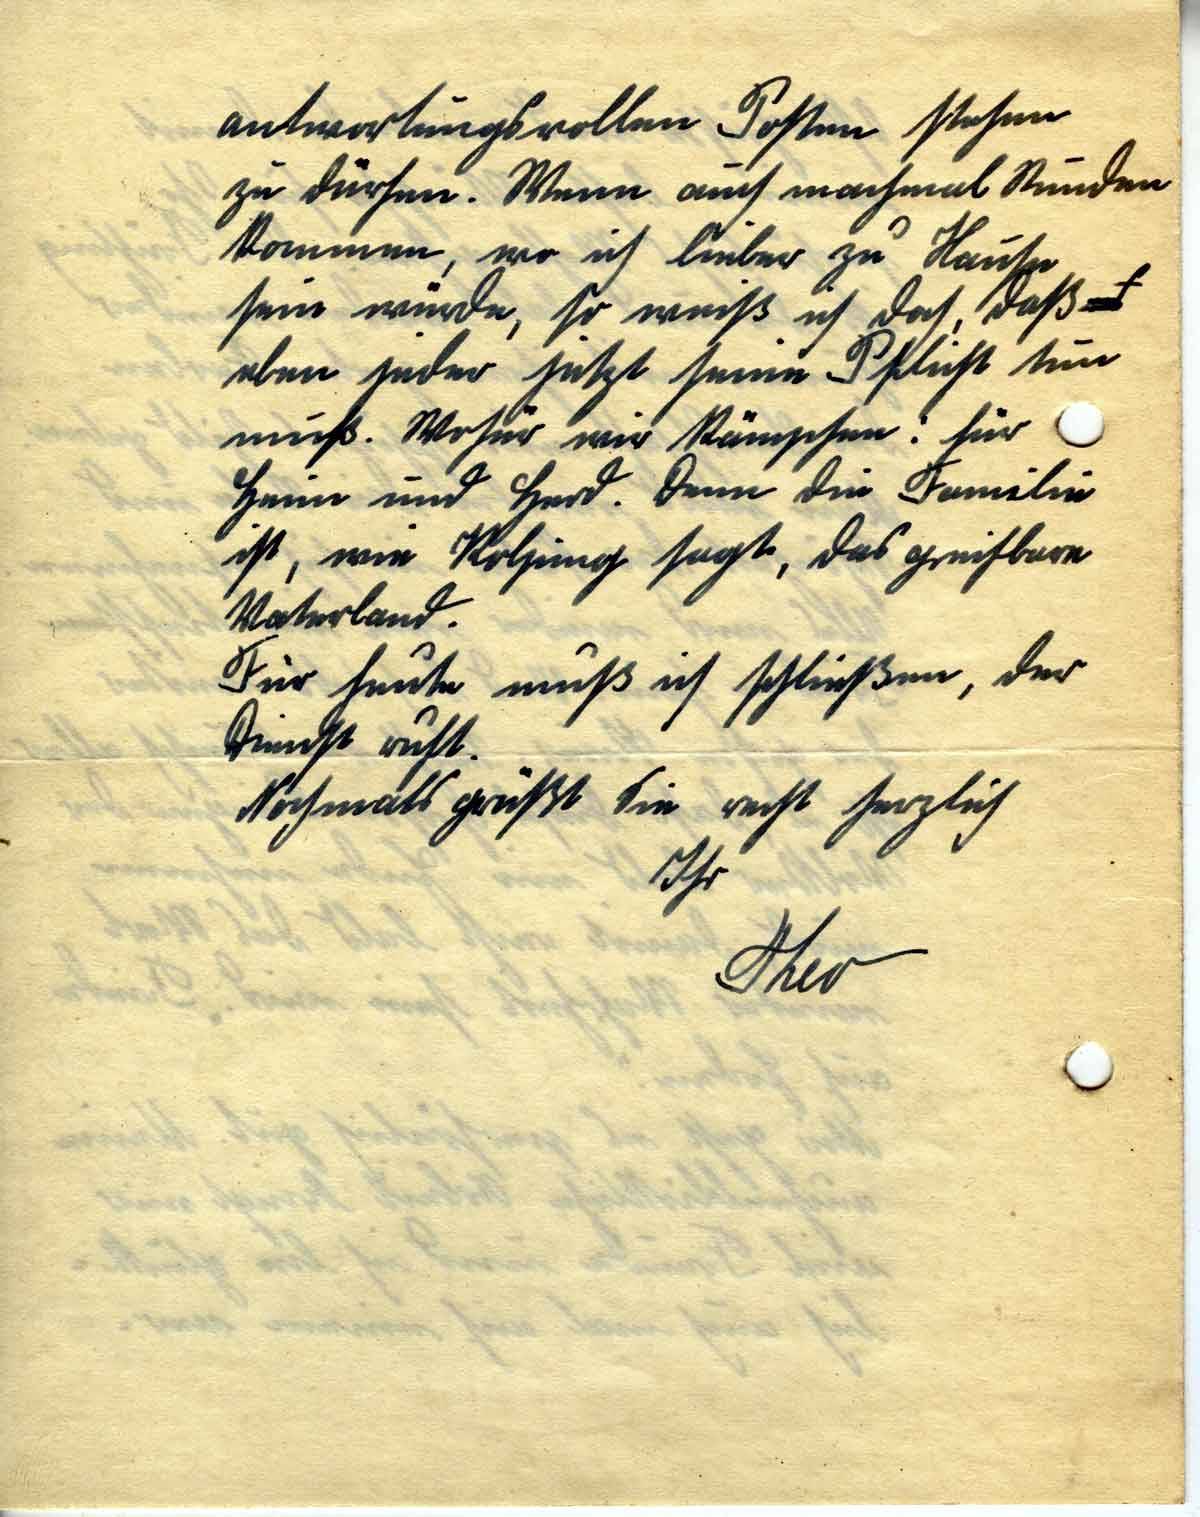 antwortungsvollen Posten stehen
zu dürfen. Wenn auch machmal Stunden
kommen, wo ich lieber zu Hause
sein würde, so weiß ich doch, daß
eben jeder jetzt seine Pflicht tun
muß. Wofür wir kämpfen: für
Heim und Herd. Denn die Familie
ist, wie Kolping sagt, das greifbare
Vaterland.
Für heute muß ich schließen, der
Dienst ruft.
Nochmals grüßt Sie recht herzlich
Ihr
Theo